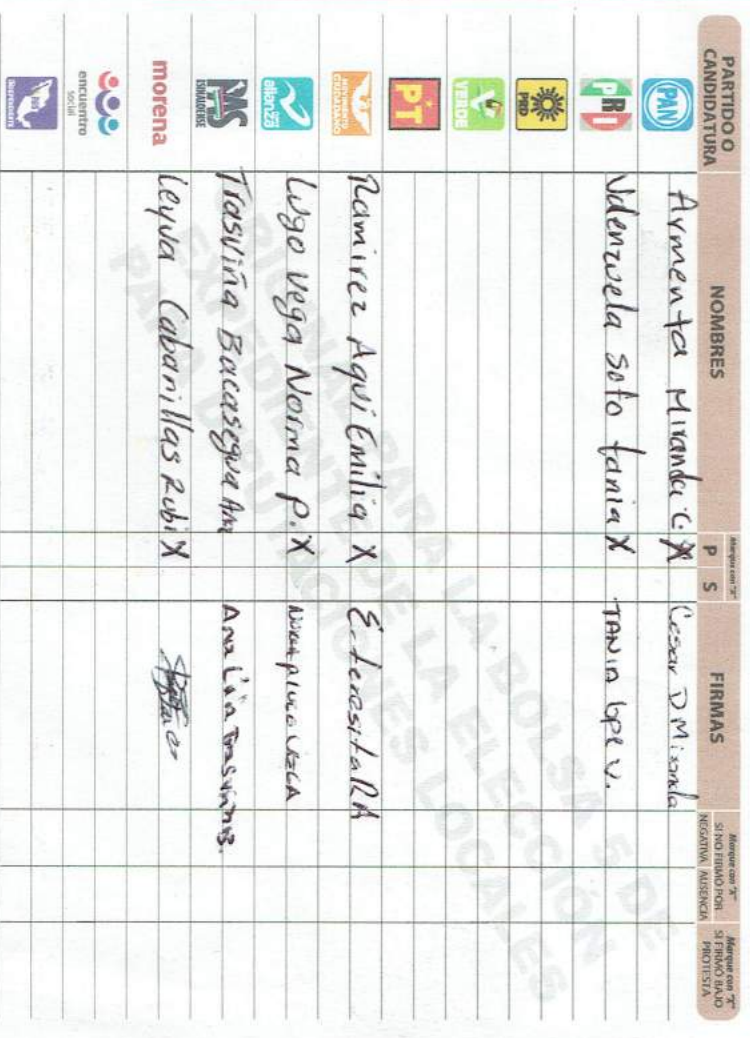 PARTIDO O
CANDIDATURA
NOMBRES
Marque con "X"
P S
FIRMAS
Marque con "X"
SI NO FIRMÓ POR
NEGATIVA AUSENCIA
Marque con "X"
SI FIRMÓ BAJO
PROTESTA
PAN Armenta Miranda C. X Cesar D Miranda
PRI Valenzuela Soto tania X TANIA
PRD
VERDE
PT
MOVIMIENTO CIUDADANO Ramirez Aqui Emilia X E. teresita RA
nueva alianza Lugo Vega Norma P. X VEGA
PAS SINALOENSE Trasviña Bacasegua Ana Ana Lina Trasviña B.
morena Leyva Cabanillas Rubi X
encuentro social
ORIGINAL PARA LA BOLSA 5 DE
EXPEDIENTE DE LA ELECCIÓN
PARA DIPUTACIONES LOCALES